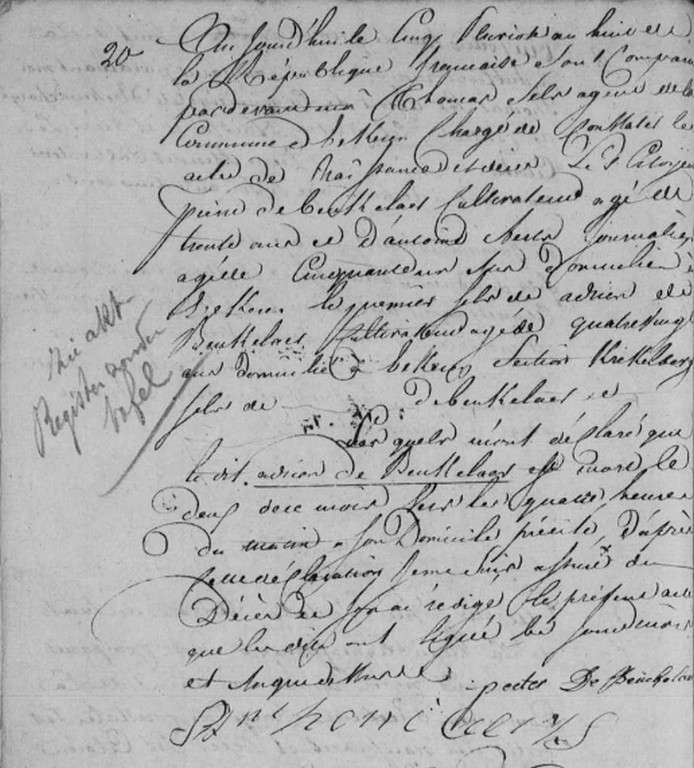 20
Au jourd'huile Cinq Pluviose au huit de
la République française sont Compar
pardevant moi Thomas agent de la
Commune d'eekeren Chargé de Constater les
actes de Naissance et décès Le Citoyen
pierre de beukelaer Cultivateur agé de
trente ans et d'antoine Aerts journalier
agé de Cinquante un ans domicilié à
Eekeren le premier fils de adrien de
Beukelaer Cultivateur agé de quatrevingt
ans domicilié à eekeren Section
fils de debeukelaer et
Les quels m'ont déclaré que
le dit adrien de Beukelaer est mort le
deux de ce mois sur les quatre heures
du matin a son Domicile précité, d'après
cette déclaration je me suis assuré du
Décès de j'en ai rédigé le présent acte
que les dits ont signé les jour mois
et an que dessus
peeter De Beuckelaer
Zie akt
Register